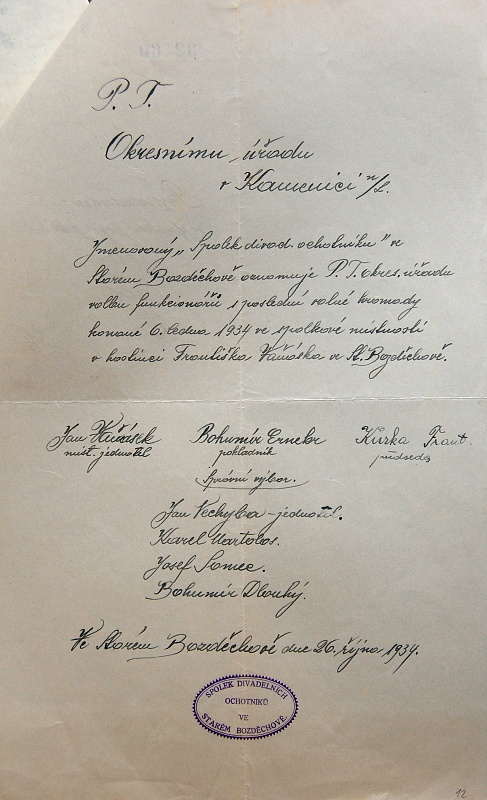 P. T.
Okresnímu úřadu
v Kamenici n/L.
Jmenovaný „Spolek divad. ochotníku" ve
Starém Bozděchově oznamuje P. T. okres. úřadu
volbu funkcionářů z poslední valné hromady
konané 6. ledna 1934 ve spolkové místnosti
v hostinci Františka Vaňáska ve St. Bozděchově.
Jan Bohumír Kůrka Frant.
míst. jednatel pokladník předseda
Správní výbor.
Jan Vechyba - jednatel.
Karel
Josef
Bohumír Dlouhý.
Ve Starém Bozděchově dne 26. října 1934.
SPOLEK DIVADELNÍCH
OCHOTNÍKŮ
VE
STARÉM BOZDĚCHOVĚ.
12